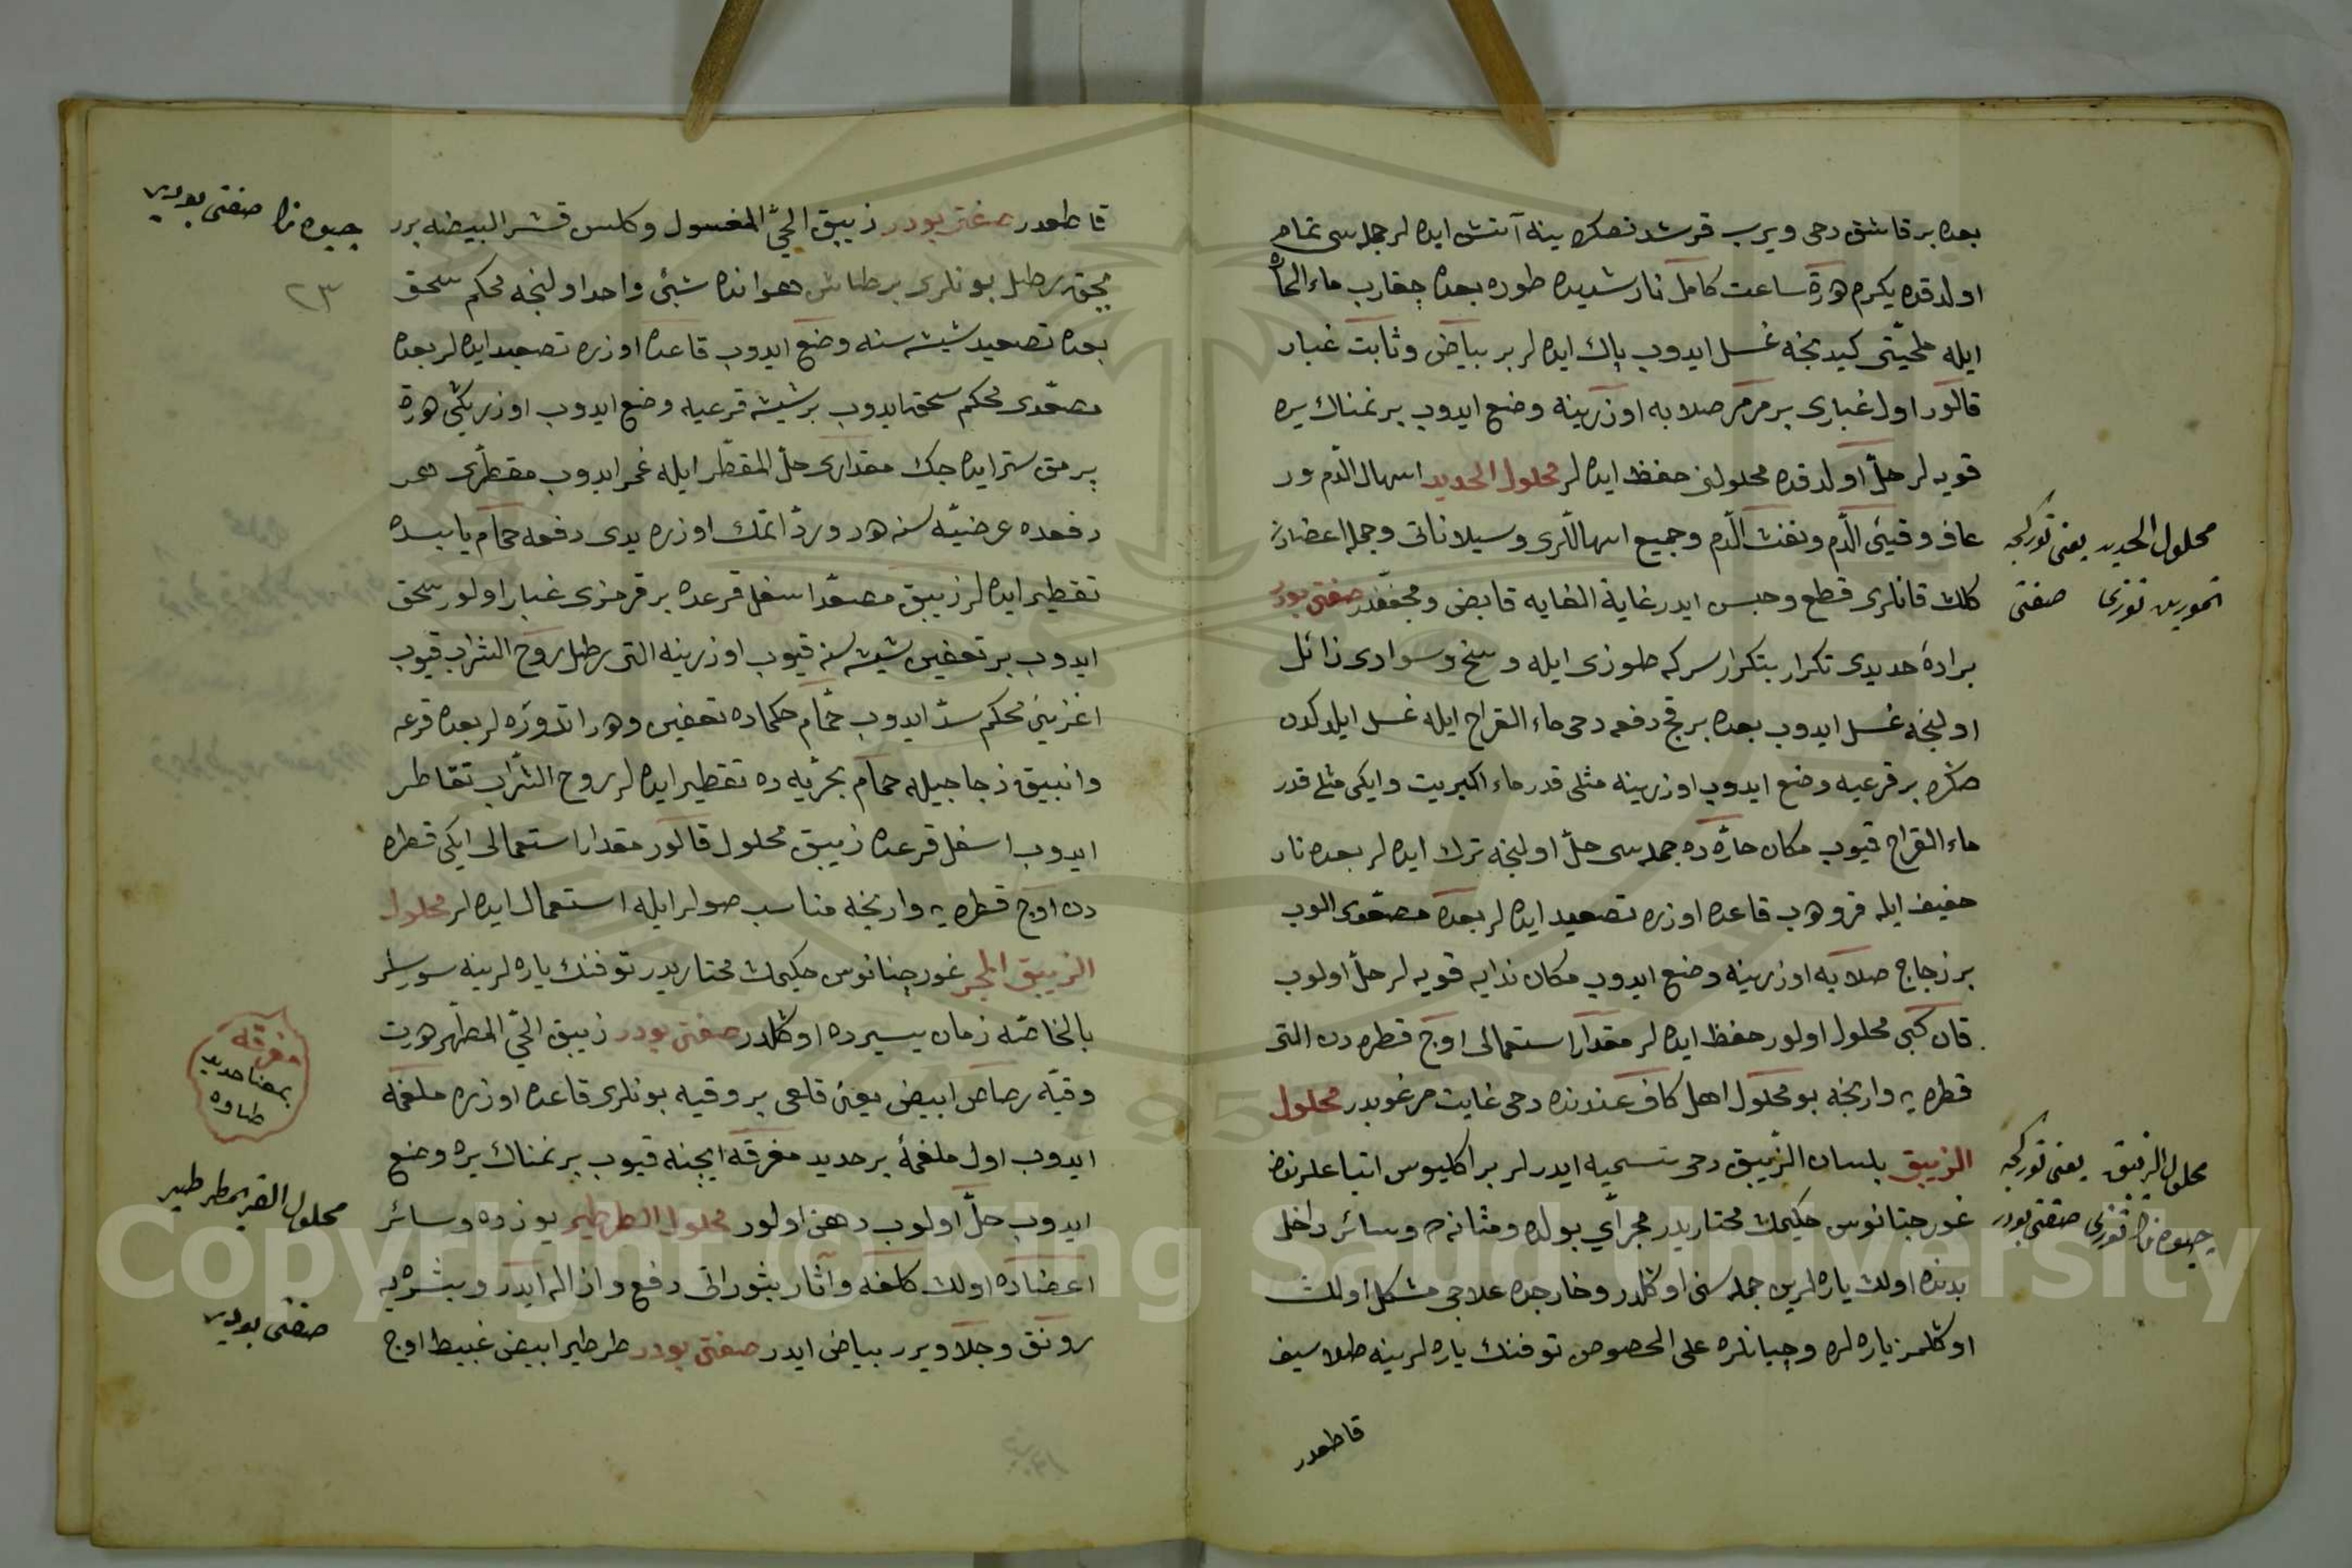 بعده بر قاشق دخی ویرب قرشدرنصكره ینه آتش ایده لر جمله سی تمام
اولدقده یكرم هورة ساعت كامل نار شدیده طوره بعده چقارب ماء الحار
ایله ملحیتی كیدنجه غسل ایدوب پاك ایده لر بر بیاض و ثابت غبار
قالور اول غباری بر مرمر صلابه اوزرینه وضع ایدوب بر نمناك یره
قویه لر حلّ اولدقده محلولنی حفظ ایده لر محلول الحدید اسهال الدّم ور
عاف وقیئ الدّم ونفث الدّم وجمیع اسهاللری وسیلاناتی وجمله اعضادن
كلن قانلری قطع وحبس ایدر غایة الغایه قابض ومجفّفدر صفتی بودر
برادۀ حدیدی تكرار بتكرار سركه طوزی ایله وسخ وسوادی زائل
اولنجه غسل ایدوب بعده بر قچ دفعه دخی ماء القراح ایله غسل ایلدكدن
صكره بر قرعیه وضع ایدوب اوزرینه مثلی قدر ماء الكبریت وایكی مثلی قدر
ماء القراح قیوب مكان حارّه ده جمله سی حلّ اولنجه ترك ایده لر بعده نار
خفیف ایله قوروهب قاعده اوزره تصعید ایده لر بعده مصعّدی الوب
بر زجاج صلابه اوزرینه وضع ایدوب مكان ندایه قویه لر حلّ اولوب
قان كبی محلول اولور حفظ ایده لر مقدار استعمالی اوج قطره دن التی
قطره یه وارنجه بو محلول اهل كاف عندنده دخی غایت مرغوبدر محلول
الزیبق بلسان الزّیبق دخی تسمیه ایدر لر براكلیوس اتباعلرندن
غورجتانوس حكیمك مختاریدر مجرآی بولده ومثانه ده وسائر داخل
بدنده اولان یاره لرین جمله سنی اوكلدر وخارجده علاجی مشكل اولان
اوكلمز یاره لره وچبانلره علی الخصوص توفنك یاره لرینه طلا سیف
قاطعدر
محلول الحدید یعنی توركجه
تمورین توزی صفتی
محلول الزیبق یعنی توركجه
جیوه نك توزی صفتی بودر
قاطعدر صفتی بودر زیبق الحیّ المغسول وكلس قشر البیضه برر
بچق رطل بونلری بر طاش هواندە شیئ واحد اولنجه محكم سحق
بعده تصعید شیشه سنه وضع ایدوب قاعده اوزره تصعید ایده لر بعده
مصعّدی محكم سحق ایدوب بر شیشه قرعیه وضع ایدوب اوزرین ایكی هورة
پرمق ستر ایده جك مقداری حلّ المقطّر ایله غمر ایدوب مقطّری هر
دفعده عرضیّه سنه هدر وردّ اتمك اوزره یدی دفعه حمّام یابسده
تقطیر ایده لر زیبق مصعّد اسفل قرعده بر قرمزی غبار اولور سحق
ایدوب بر تعفین شیشه سنه قیوب اوزرینه التی رطل روح الشراب قیوب
اغزینی محكم سدّ ایدوب حمّام حكماده تعفین وهر اندوزه لر بعده قرعه
وانبیق زجاجیله حمّام بحریّه ده تقطیر ایده لر روح الشّراب تقاطر
ایدوب اسفل قرعده زیبق محلول قالور مقدار استعمالی ایكی قطره
دن اوج قطره یه وارنجه مناسب صولر ایله استعمال ایده لر محلول
الزیبق الجر غورجتانوس حكیمك مختاریدر توفنك یاره لرینه سورلر
بالخاصّه زمان یسیرده اوكلدر صفتی بودر زیبق الحیّ المطهّر هربت
وقیّه رصاص ابیض یعنی قلعی بر وقیه بونلری قاعده اوزره ملغمه
ایدوب اول ملغمۀ بر حدید مغرقه ایچنه قیوب بر نمناك یره وضع
ایدوب حلّ اولوب دهن اولور محلول الطرطیر یوزده وسائر
اعضاده اولان كلفه وآثار بثوراتی دفع وازاله ایدر وبشرەیه
رونق وجلا ویرر بیاض ایدر صفتی بودر طرطیر ابیض غبیط اوج
جیوه نك صفتی بودر
٢٣
مغرقه
بمعنا حدید
طاوه
محلول القریمطرطیر
صفتی بودر